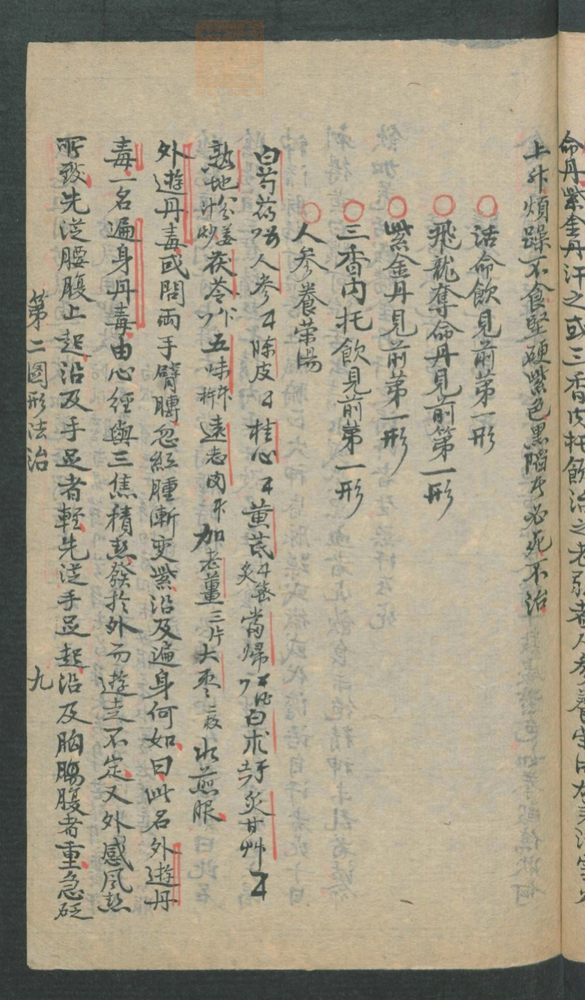 命丹紫金丹汗之或三香内托飲治之老弱者人參養
上升煩躁不食堅硬紫色黑陷片必死不治
○活命飲見前第一形
○飛龍奪命丹見前第一形
○紫金丹見前第一形
○三香内托飲見前第一形
○人參養榮湯
白芍藥 人參 陳皮 桂心 黄芪 炙 當歸 白朮 炙甘艸
熟地 炒 茯苓 五味 遠志肉 加老薑三片大棗 水煎服
外遊丹毒或問兩手臂膊忽紅腫漸变紫沿及遍身何如曰此名外遊丹
毒一名遍身丹毒由心經與三焦積熱發於外而遊走不定又外感風熱
所致先從腰腹上起沿及手足者輕先從手足起沿及胸膓腹者重急砭
第二圖形法治 九